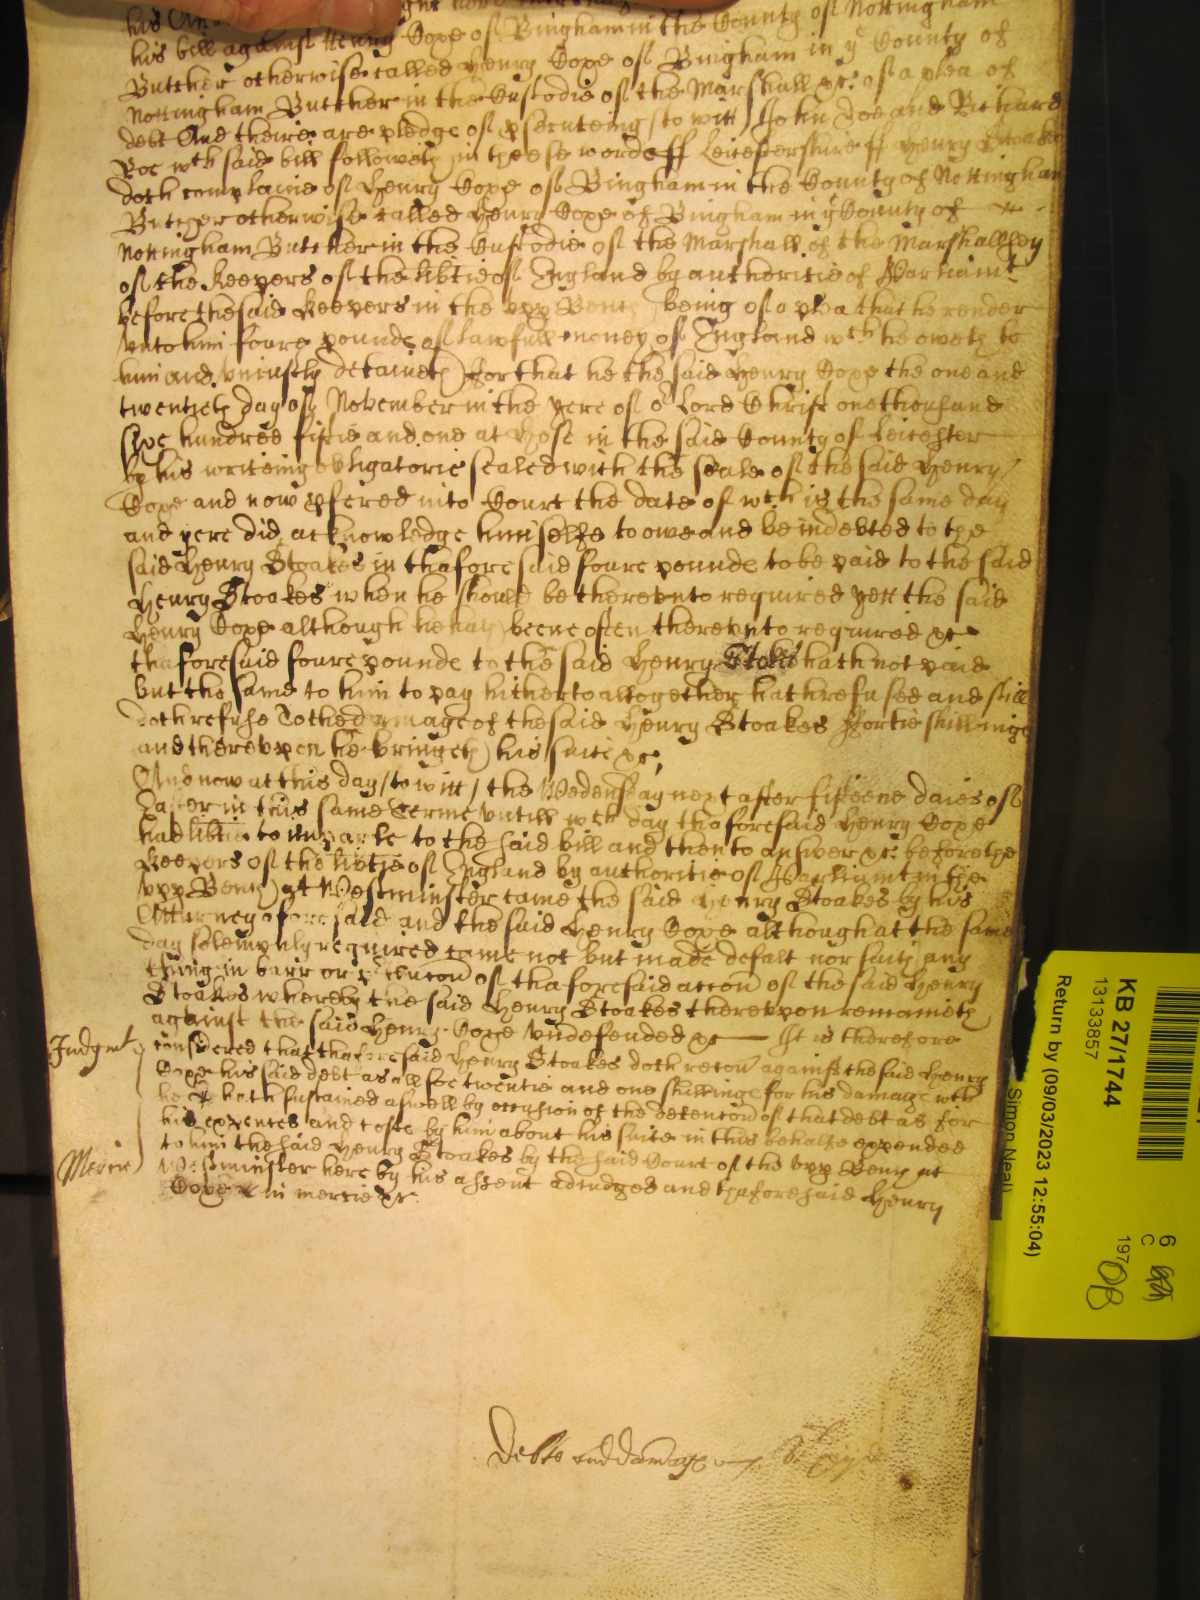 his
his bill against Henry Cope of Bingham in the County of Nottingham
Butcher otherwise called Henry Cope of Bingham in ye County of
Nottingham Butcher in the Custodie of the Marshall &c: of a plea of
debt And theire are pledge of psecuteing (to witt) John Doe and Richard
Roe wch said bill followeth in theese words ff Leicestershire ff Henry Stoakes
doth complaine of Henry Cope of Bingham in the County of Nottingham
Butcher otherwise called Henry Cope of Bingham in ye County of
Nottingham Butcher in the Custodie of the Marshall of the Marshallsey
of the Keepers of the libtie of England by authoritie of Parliamt
before the said Keepers in the vpp Bench being of a plea that he render
vnto him foure pounds of lawfull money of England wch he oweth to
him and vniustly detaineth) For that he the said Henry Cope the one and
twentieth day of November in the yere of or Lord Christ one thousand
sixe hundred fiftie and one at Hose in the said County of Leicester
by his writeing obligatorie sealed with the seale of the said Henry
Cope and now pfered into Court the date of wch is the same day
and yere did acknowledge himselfe to owe and be indebted to the
said Henry Stoakes in thaforesaid foure pounde to be paid to the said
Henry Stoakes when he should be therevnto required yett the said
Henry Cope although he hath beene often therevnto required &c
thaforesaid foure pounde to the said Henry Stokes hath not paid
but the same to him to pay hitherto altogether hath refused and still
doth refuse To the damage of the said Henry Stoakes Fortie shillings
and therevpon he bringeth) his suite &c;
And now at this day (to witt) the Wedensday next after fifteene daies of
Easter in this same Terme vntill wch day thaforesaid Henry Cope
had libtie to imparle to the said bill and then to answer &c: before the
Keepers of the libtie of England by authoritie of Parliamt in the
vpp Bench) at Westminster came the said Henry Stoakes by his
Atturney aforesaid and the said Henry Cope although at the same
day solempnly required came not but made defalt nor saith any
thing in barr or of thaforesaid accon of the said Henry
Stoakes whereby the said Henry Stoakes therevpon remaineth
against the said Henry Cope vndefended &c It is therefore
Judgmt consdered that thaforesaid Henry Stoakes doth recour against the said Henry
Cope his said debt as alsoe twentie and one shillings for his damage wch
he hath sustained aswell by occasion of the detencon of that debt as for
his expences and costs by him about his suite in this behalfe expended
to him the said Henry Stoakes by the said Court of the vpp Bench at
Mercie Westminster here by his assent adiudged and thaforesaid Henry
Cope in mercie &c.
Debts and damages
KB 27/1744
13133857
Return by (09/03/2023 12:55:04)
Simon Neal
6
C
197